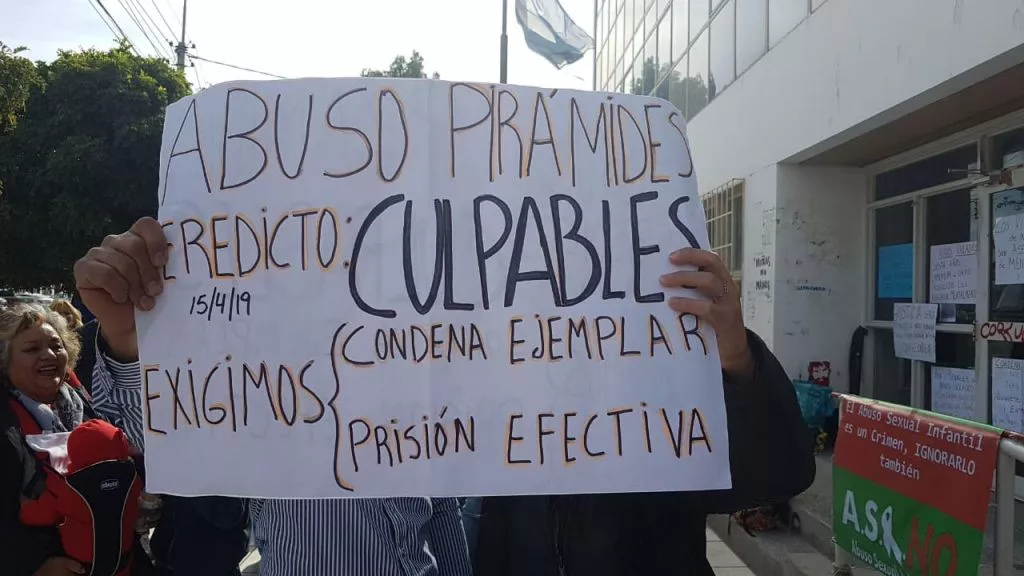 ABUSO PIRÁMIDES
EREDICTO: CULPABLES
15/4/19
EXIGIMOS { CONDENA EJEMPLAR
PRISIÓN EFECTIVA
chicco
CORRU
El Abuso Sexual Infantil
es un Crimen, IGNORARLO
también
A.S.I NO
Abuso Sexual